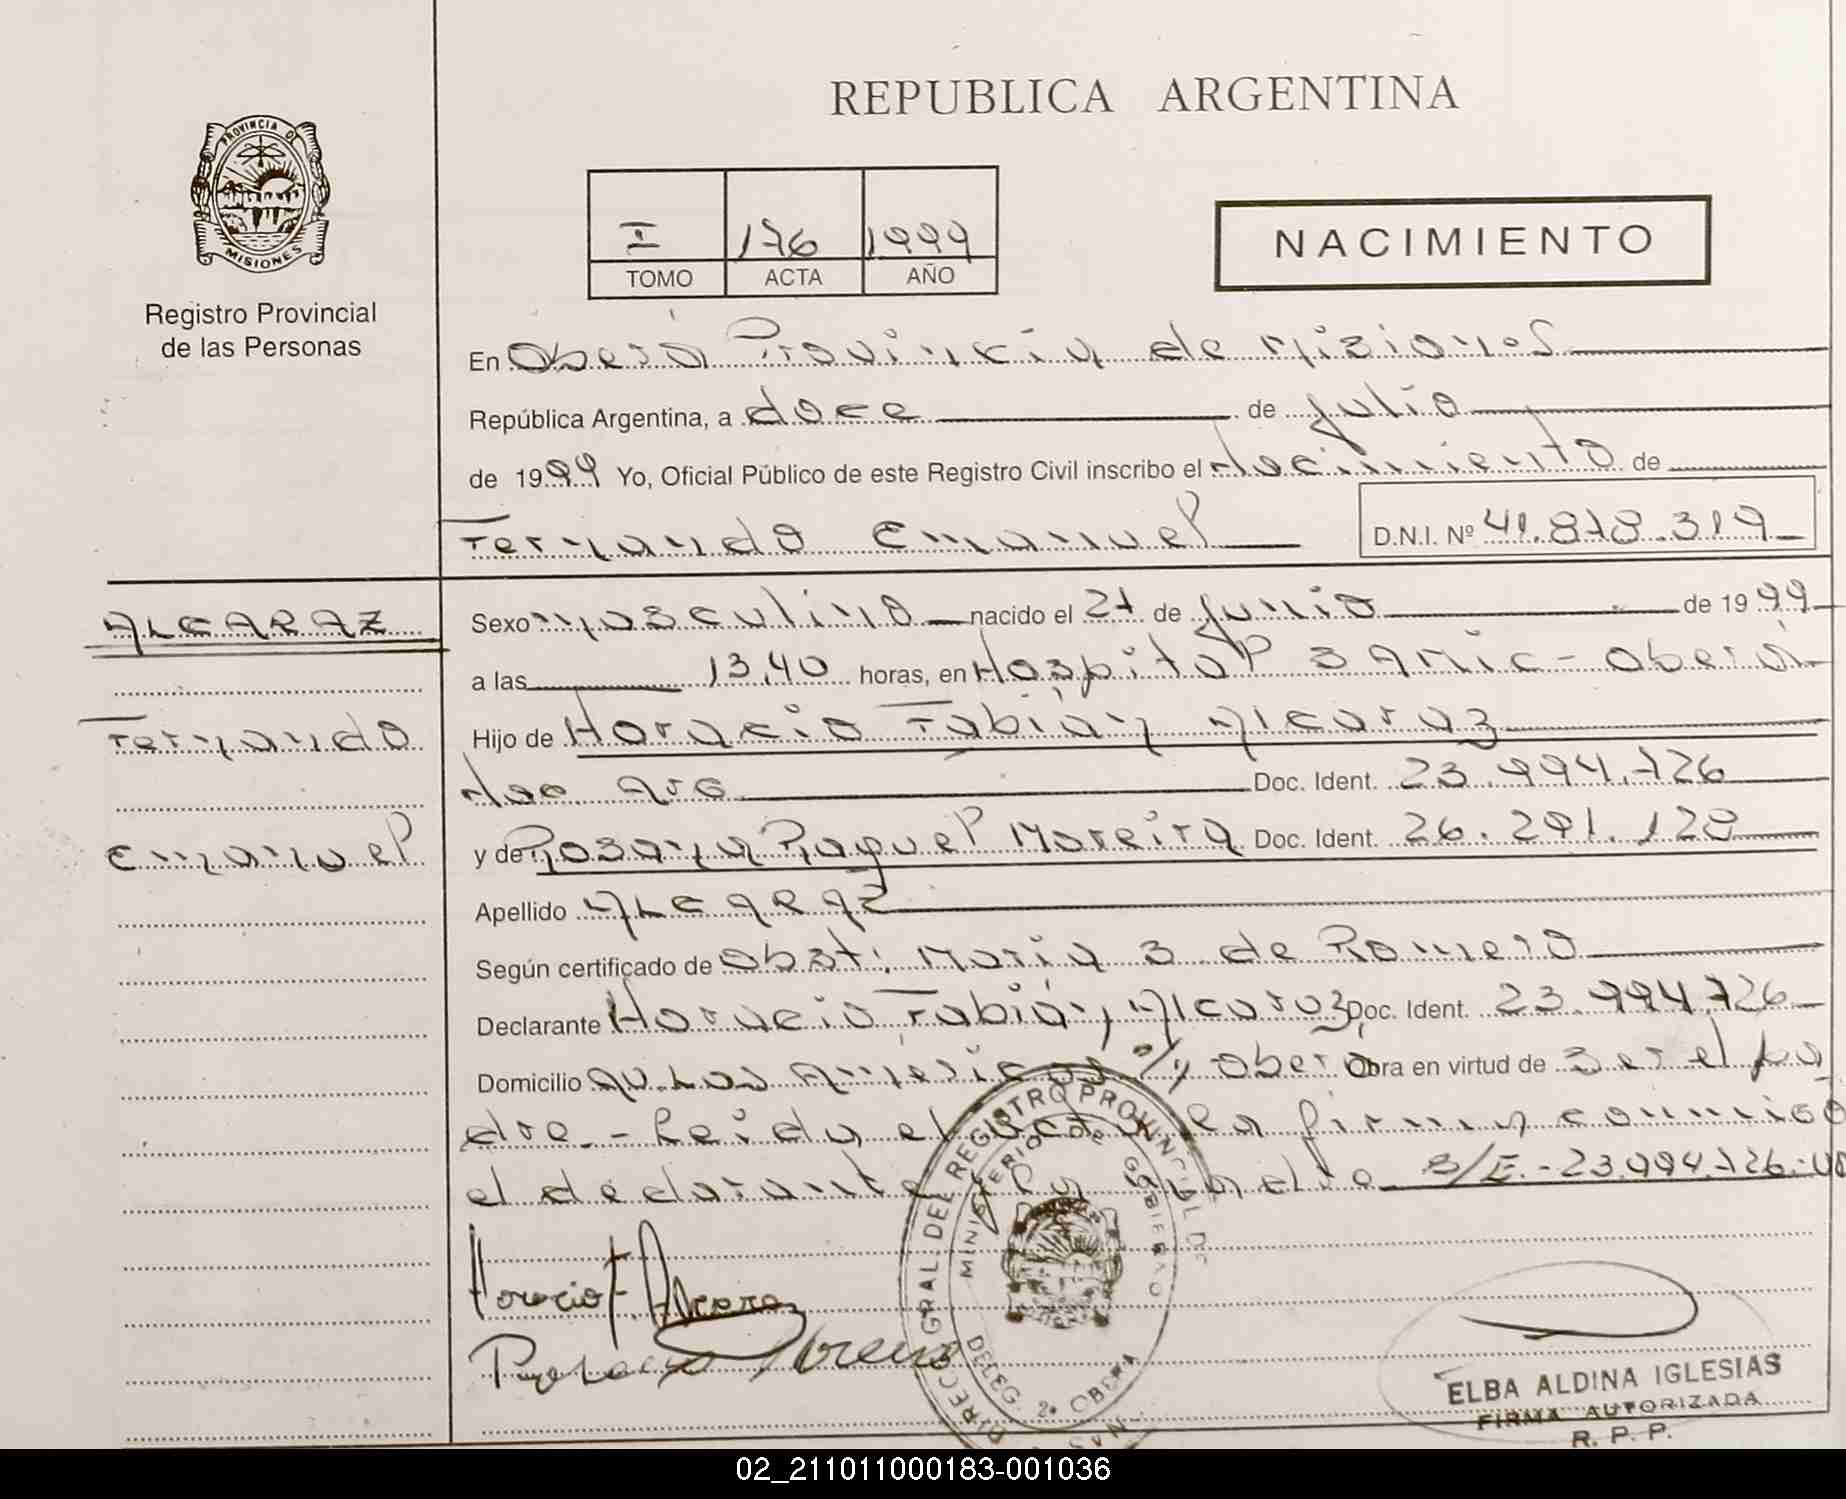 REPUBLICA ARGENTINA
PROVINCIA DE
MISIONES
Registro Provincial
de las Personas
I 176 1999
TOMO ACTA AÑO
NACIMIENTO
En Oberá Provincia de Misiones
República Argentina, a doce de julio
de 1999 Yo, Oficial Público de este Registro Civil inscribo el Nacimiento de
Fernando Emanuel D.N.I. Nº 41.878.319
ALCARAZ
Fernando
Emanuel
Sexo masculino nacido el 27 de junio de 1999
a las 13,40 horas, en Hospital SAMIC - Oberá
Hijo de Horacio Fabián Alcaraz
Nac Arg Doc. Ident. 23.994.726
y de Rosana Raquel Moreira Doc. Ident. 26.291.128
Apellido ALCARAZ
Según certificado de Obst: María S de Romero
Declarante Horacio Fabián Alcaraz Doc. Ident. 23.994.726
Domicilio Av. Las Américas s/n Oberá Obra en virtud de ser el pa
dre.- Leida el acta la firma conmigo
el declarante S/E.- 23.994.726.-
Horacio F. Alcaraz
DIREC. GRAL. DEL REGISTRO PROVINCIAL DE
MINISTERIO DE GOBIERNO
DELEG. 2ª OBERA
ELBA ALDINA IGLESIAS
FIRMA AUTORIZADA
R. P. P.
02_211011000183-001036